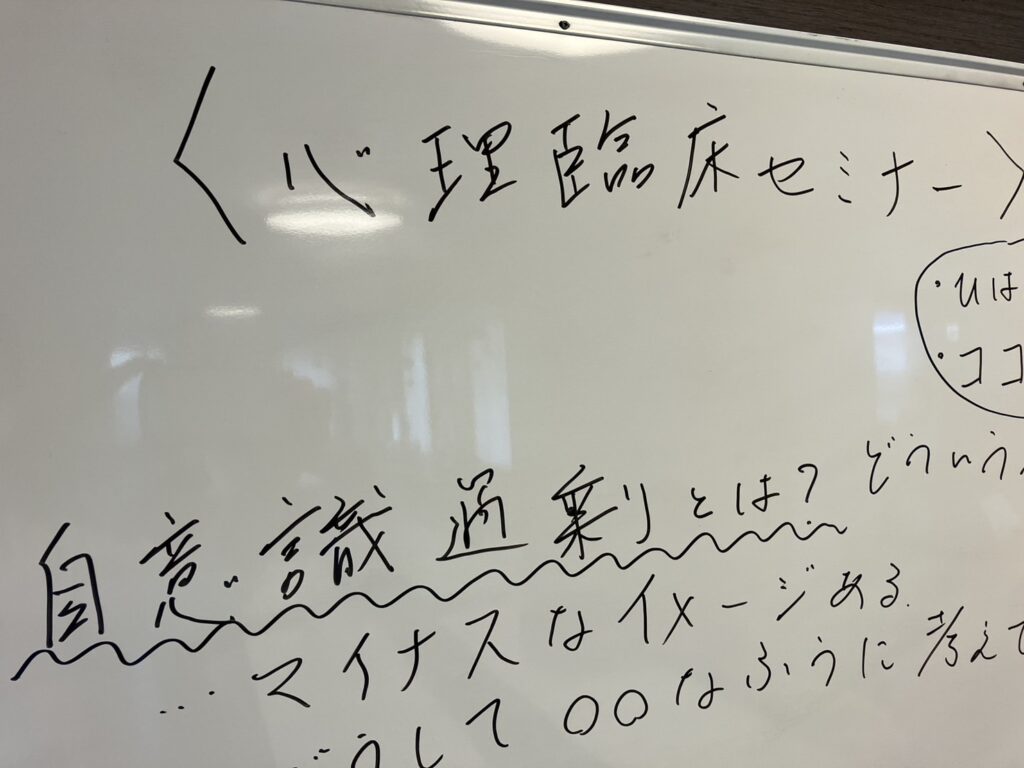 〈心理臨床セミナー〉
・Uは
・ココ
自意識過剰とは? どういう
…マイナスなイメージある.
どうして〇〇なふうに考えて